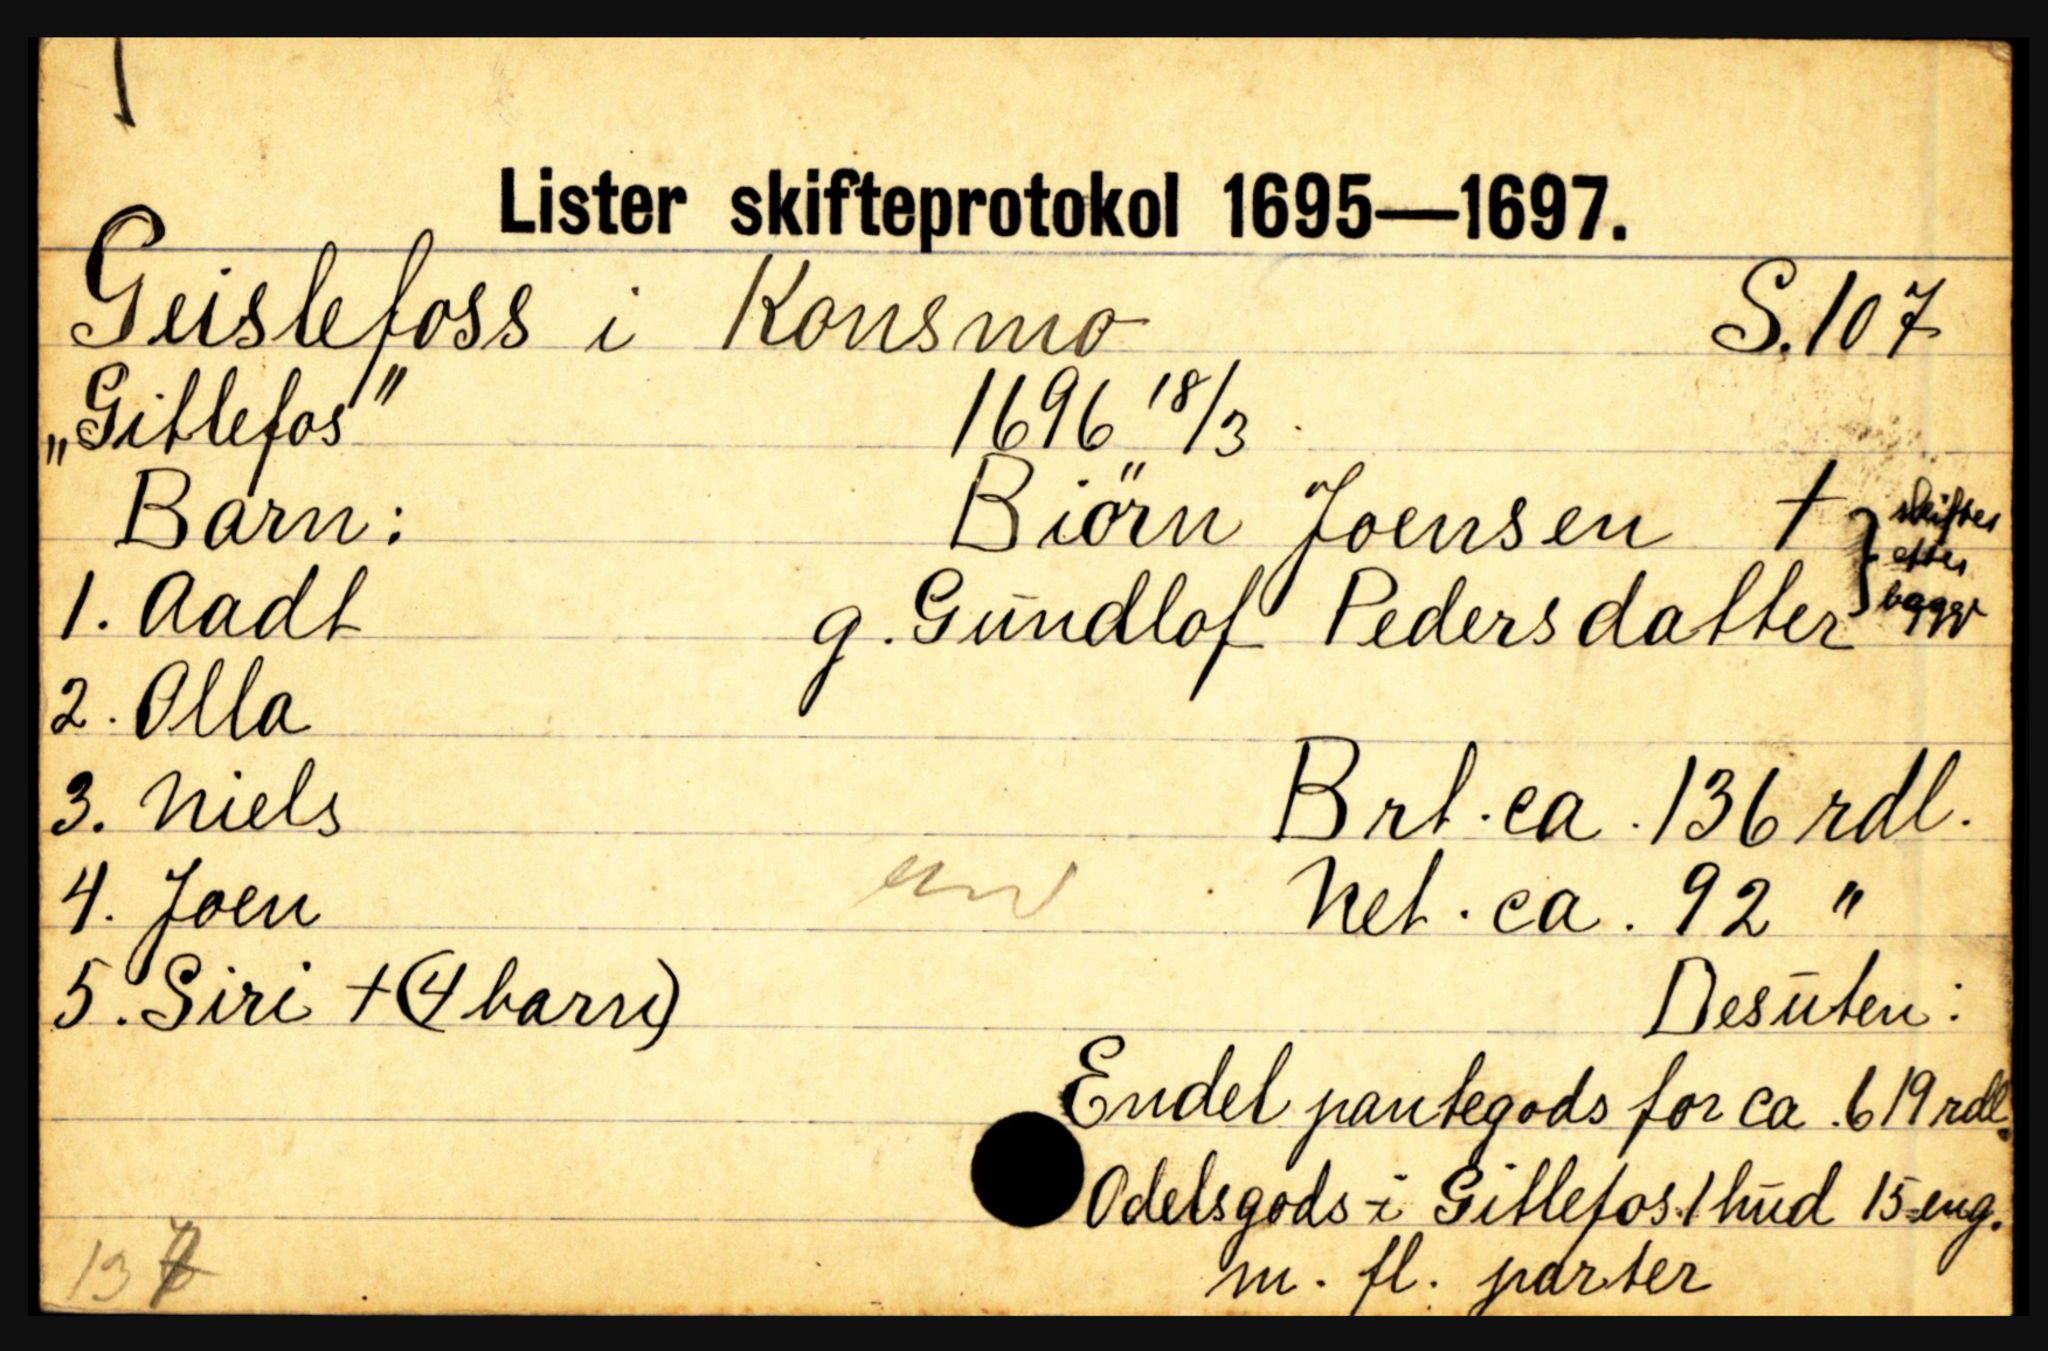 Lister skifteprotokol 1695—1697.
Geislefoss i Konsmo S. 107
„Gitlefos" 1696 18/3
Barn: Biörn Joensen † } skiftes etter begge
1. Aadt g. Gundlof Pedersdatter
2. Olla
3. Niels Brt. ca. 136 rdl.
4. Joen Net. ca. 92 "
5. Siri † (4 barn) Desuten:
Endel pantegods for ca. 619 rdl.
Odelsgods i Gitlefos 1 hud 15 eng.
m. fl. parter